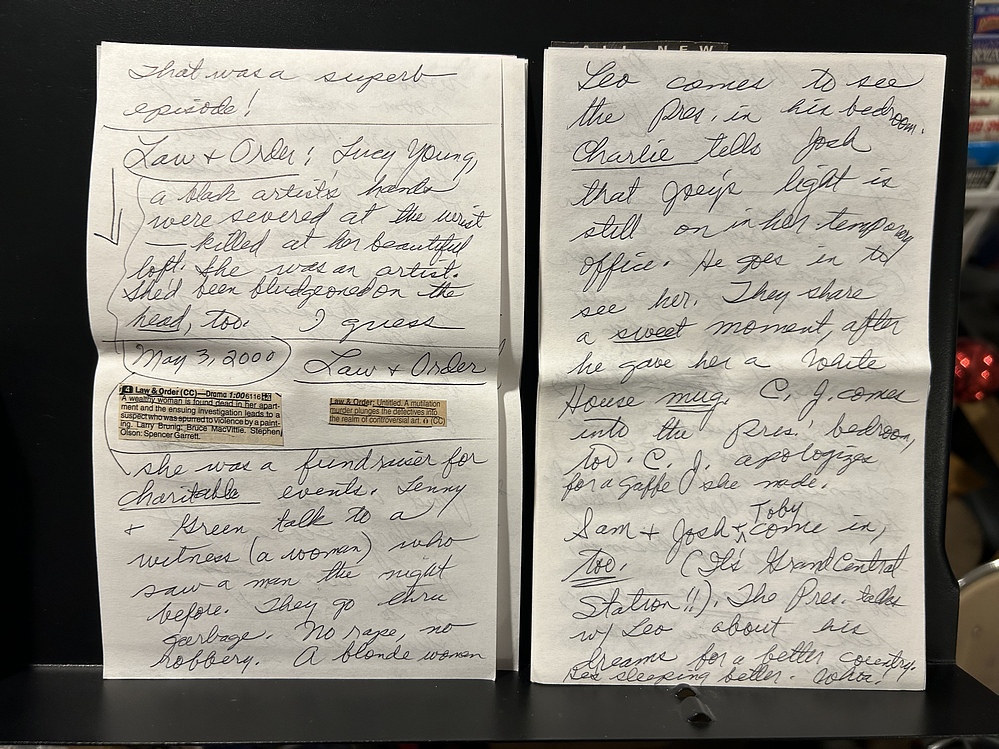 That was a superb
episode!
Law & Order: Lucy Young,
a blak artist's hands
were severed at the wrist
— killed at her beautiful
loft. She was an artist.
She'd been bludgeoned on the
head, too. I guess
May 3, 2000 Law & Order
4 Law & Order (CC)—Drama 1:00 6116
A wealthy woman is found dead in her apart-
ment and the ensuing investigation leads to a
suspect who was spurred to violence by a paint-
ing. Larry Brunig: Bruce MacVittie. Stephen
Olson: Spencer Garrett.
Law & Order; Untitled. A mutilation
murder plunges the detectives into
the realm of controversial art. (CC)
she was a fundraiser for
charitable events. Lenny
& Green talk to a
witness (a woman) who
saw a man the night
before. They go thru
garbage. No rape, no
robbery. A blonde women
ALL NEW
Leo comes to see
the Pres. in his bedroom.
Charlie tells Josh
that Joey's light is
still on in her temporary
office. He goes in to
see her. They share
a sweet moment, after
he gave her a White
House mug. C. J. comes
into the Pres.' bedroom,
too. C. J. apologizes
for a gaffe she made.
Sam & Josh & Toby come in,
too. (It's Grand Central
Station!!). The Pres. talks
w/ Leo about his
dreams for a better country.
sleeping better.